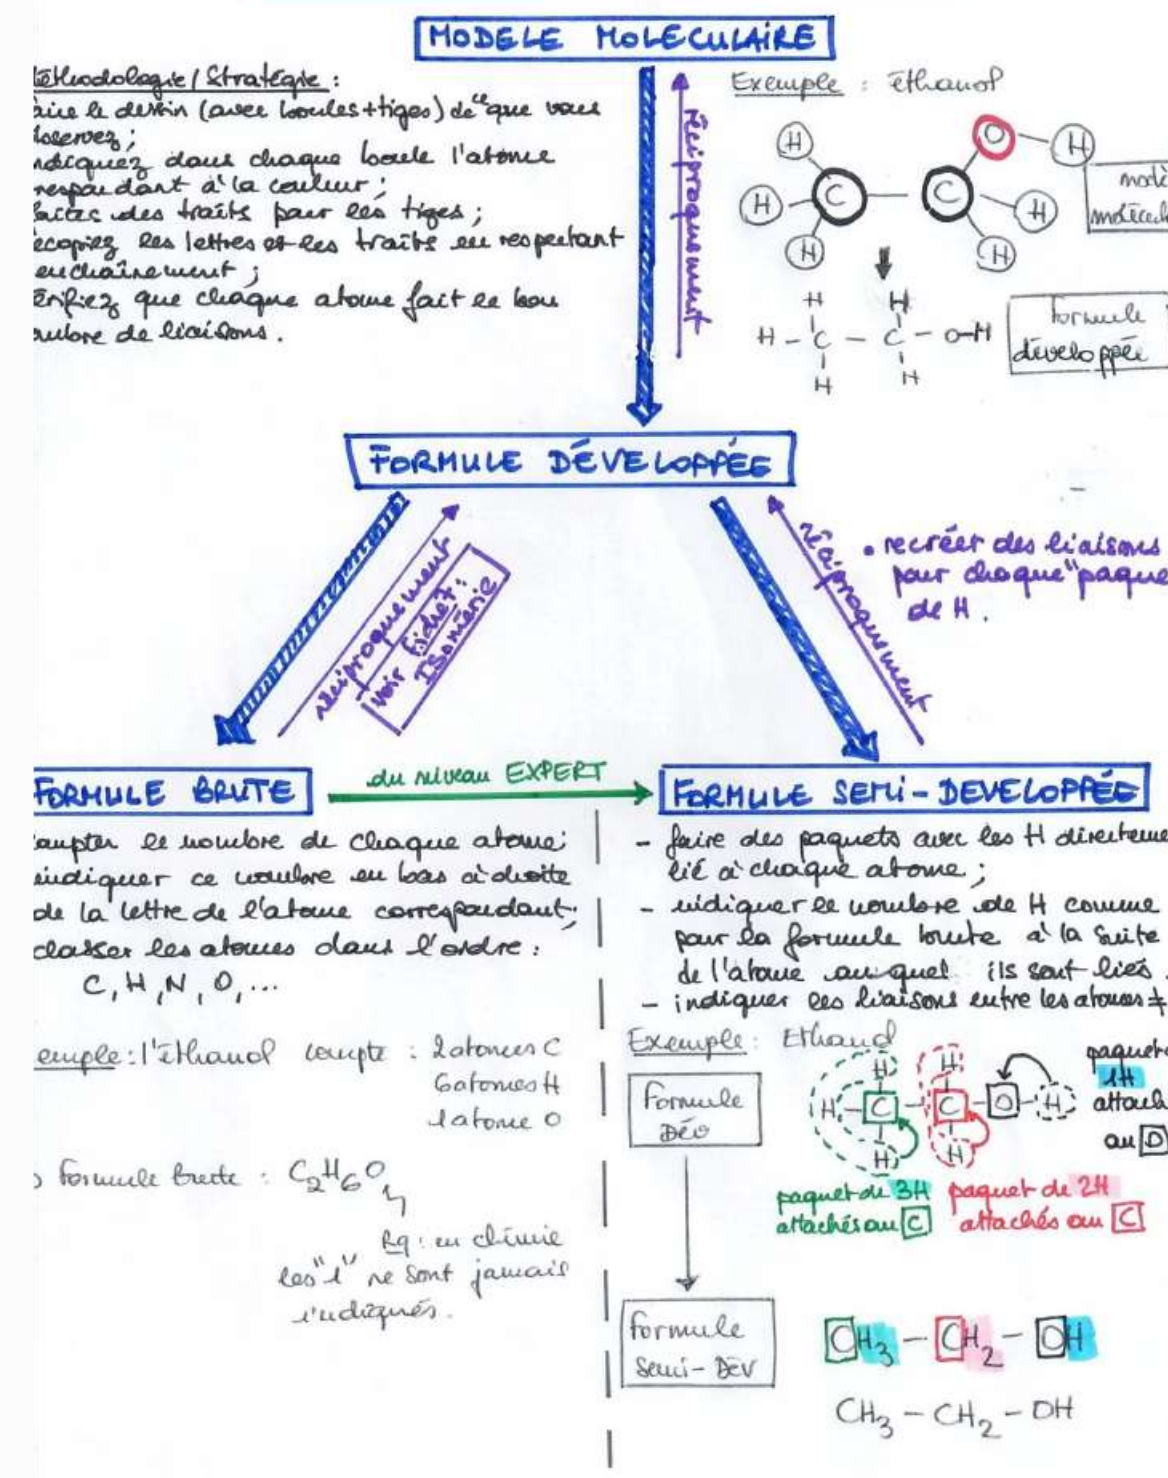 MODELE MOLECULAIRE
éthodologie / Stratégie :
aire le dessin (avec boules+tiges) de "que vous
bservez ;
ndiquez dans chaque boule l'atome
respondant à la couleur ;
aites des traits pour les tiges ;
ecopiez les lettres et les traits en respectant
enchaînement ;
érifiez que chaque atome fait le bon
ombre de liaisons.
réciproquement
Exemple : éthanol
H O H
H C C H
H H
modè
molécul
H H
H - C - C - O-H
H H
Formule
développée
FORMULE DÉVELOPPÉE
réciproquement
voir fiche 7 :
ISomérie
réciproquement
• recréer des liaisons
pour chaque "paque
de H.
FORMULE BRUTE
du niveau EXPERT
FORMULE SEMI-DEVELOPPÉE
ompter le nombre de chaque atome ;
indiquer ce nombre en bas à droite
de la lettre de l'atome correspondant ;
classer les atomes dans l'ordre :
C, H, N, O, ...
emple : l'éthanol compte : 2 atomes C
6 atomes H
1 atome O
Formule brute : C2H6O1
Rq : en chimie
les "1" ne sont jamais
indiqués.
- faire des paquets avec les H directeme
lié à chaque atome ;
- indiquer le nombre de H comme
pour la formule brute à la suite
de l'atome auquel ils sont liés.
- indiquer les liaisons entre les atomes ≠
Exemple : Ethanol
Formule
Dév
H H
H - C - C - O - H
H H
paquet
1H
attach
au O
paquet de 3H
attachés au C
paquet de 2H
attachés au C
formule
Semi-Dév
CH3 - CH2 - OH
CH3 - CH2 - OH